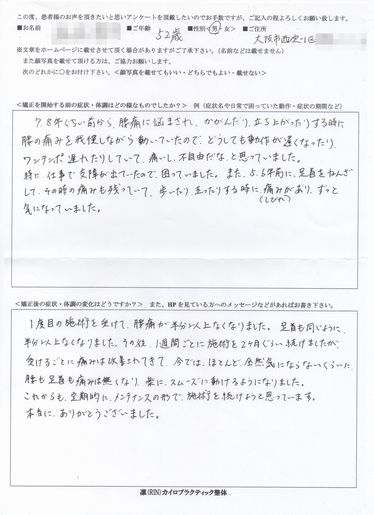 この度、患者様のお声を頂きたいと思いアンケートを頂戴したいのでお手数ですが、ご記入の程よろしくお願い致します。
■お名前 ■ご年齢 52歳 ■性別<男・女> ■ご住所 大阪市西淀川区
※文章をホームページに載せさせて頂く場合がありますがご了承下さい。(名前などは載せません)
また顔写真を載せて頂ける方は、ご協力お願いします。
次のどれかに○をお付け下さい。<顔写真を載せてもいい・どちらでもよい・載せない>
<矯正を開始する前の症状・体調はどの様なものでしたか?> 例(症状名や日常で困っていた動作・症状の期間など)
7.8年くらい前から、腰痛に悩まされ、かがんだり、立ち上がったりする時に
腰の痛みを我慢しながら動いていたので、どうしても動作が遅くなったり、
ワンテンポ遅れたりしていて、痛いし、不自由だな、と思っていました。
特に、仕事で支障が出ていたので、困っていました。また、5.6年前に、足首をねんざ
して、その時の痛みも残っていて、歩いたり、走ったりする時に、痛みがあり、ずっと
(しびれ)
気になっていました。
<矯正後の症状・体調の変化はどうですか?> また、HPを見ている方へのメッセージなどがあればお書き下さい。
1度目の施術を受けて、腰痛が半分以上なくなりました。足首も同じように、
半分以上なくなりました。その後、1週間ごとに施術を2ヶ月ぐらい続けましたが、
受けるごとに痛みは改善されてきて、今では、ほとんど、全然気にならないくらいに、
腰も足首も痛みは無くなり、楽に、スムーズに動けるようになりました。
これからも、定期的に、メンテナンスの形で、施術を続けようと思っています。
本当に、ありがとうございました。
凛(RIN)カイロプラクティック整体